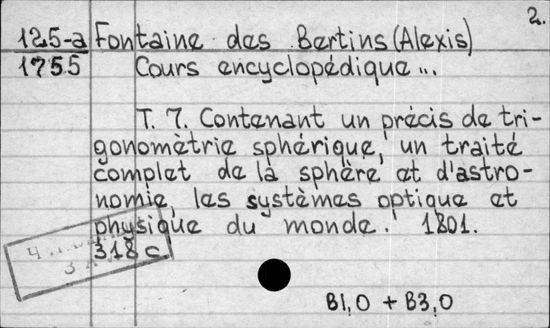 2.
125-a Fontaine des Bertins (Alexis)
1755 Cours encyclopédique...
T. 7. Contenant un précis de tri-
gonomètrie sphérique, un traité
complet de la sphère et d'astro-
nomie, les systèmes optique et
physique du monde. 1801.
318 c.
B1,0 + B3,0